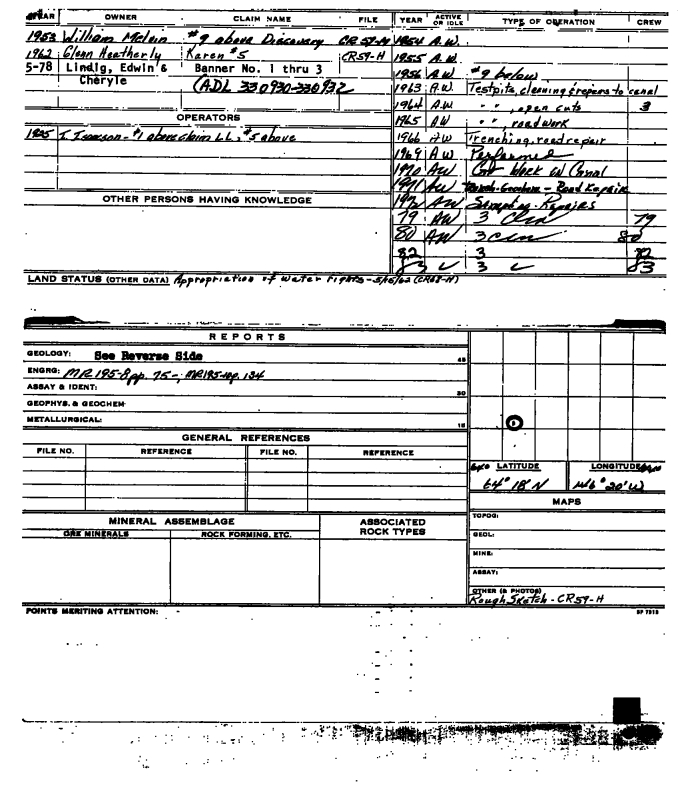 YEAR OWNER CLAIM NAME FILE YEAR ACTIVE OR IDLE TYPE OF OPERATION CREW
1953 William McLvin #9 above Discovery CR 57-H 1954 A.W.
1962 Glenn Heatherly Karen #5 CR59-H 1955 A.W.
5-78 Lindig, Edwin & Cheryle Banner No. 1 thru 3 1956 AW #9 below
(ADL 330930-330932 1963 A.W. Testpits, cleaning & repairs to canal
1964 A.W " ", open cuts 3
OPERATORS 1965 AW " ", roadwork
I. Isaacson - #1 above claim LL.; #5 above 1966 AW Trenching, road repair
1969 AW Performed
1970 AW Work on Canal
1971 AW Road Repair
OTHER PERSONS HAVING KNOWLEDGE 1972 AW Sampling - Repairs
79 AW 3 Clm 79
80 AW 3 Clm 80
82 3 82
83 3 83
LAND STATUS (OTHER DATA) Appropriation of water rights - 5/15/62
REPORTS
GEOLOGY: See Reverse Side 45
ENGRG: MR195-8 pp. 75-; MR195- p. 134
ASSAY & IDENT: 30
GEOPHYS. & GEOCHEM:
METALLURGICAL: 15
GENERAL REFERENCES
FILE NO. REFERENCE FILE NO. REFERENCE
LATITUDE LONGITUDE
64° 18' N 146° 20' W
MAPS
MINERAL ASSEMBLAGE ASSOCIATED ROCK TYPES TOPOG:
ORE MINERALS ROCK FORMING, ETC. GEOL:
MINE:
ASSAY:
OTHER (& PHOTOS)
Rough Sketch - CR59-H
POINTS MERITING ATTENTION: